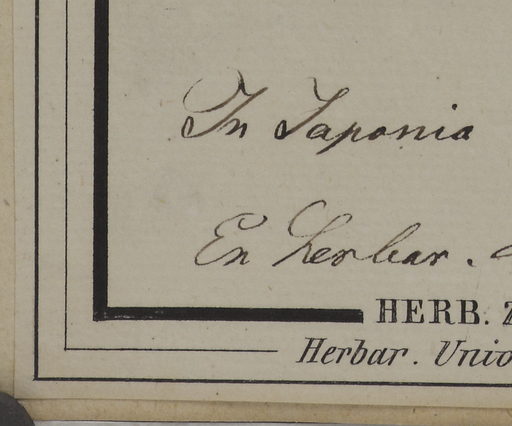 In Japonia
Ex herbar.
HERB.
Herbar. Unio